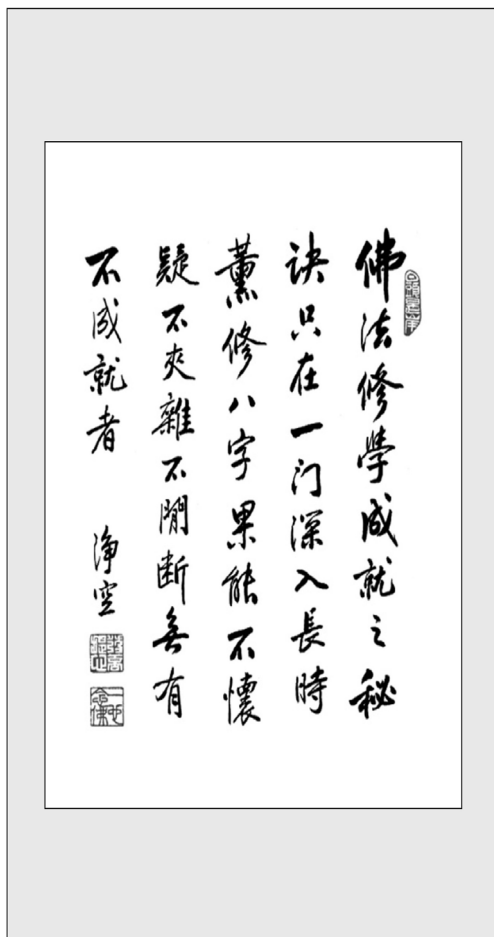 佛法修學成就之秘
诀只在一门深入長時
薰修八字果能不懷
疑不夾雜不閒断無有
不成就者
淨空
一心念佛